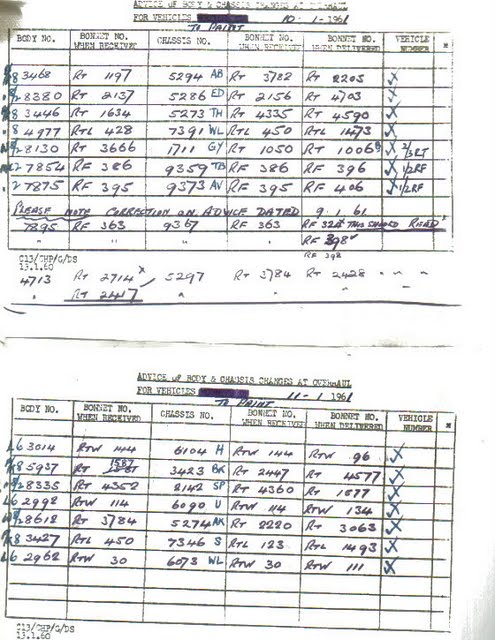 ADVICE OF BODY & CHASSIS CHANGES AT OVERHAUL
FOR VEHICLES 10-1-1961
TO PAINT
BODY NO. BONNET NO. WHEN RECEIVED CHASSIS NO. BONNET NO. WHEN RECEIVED BONNET NO. WHEN DELIVERED VEHICLE NUMBER
8 3468 RT 1197 5294 AB RT 3782 RT 2205 X
8380 RT 2137 5286 ED RT 2156 RT 4703 X
8 3446 RT 1634 5273 TH RT 4335 RT 4590 X
8 4977 RTL 428 7391 WL RTL 450 RTL 1473 X
8130 RT 3666 1711 GY RT 1050 RT 1006 X 2/3RT
7854 RF 386 9359 TB RF 386 RF 396 X 1/2RF
7875 RF 395 9373 AV RF 395 RF 406 X 1/2RF
PLEASE NOTE CORRECTION ON ADVICE DATED 9.1.61
7895 RF 363 9367 RF 363 RF 324 THIS SHOULD READ
" " " " RF 398
RF 398
C13/CHP/G/DS
13.1.60
4713 RT 2714 X 5297 RT 3784 RT 2428 " " "
" RT 2447 " " "
ADVICE OF BODY & CHASSIS CHANGES AT OVERHAUL
FOR VEHICLES 11-1 1961
TO PAINT
BODY NO. BONNET NO. WHEN RECEIVED CHASSIS NO. BONNET NO. WHEN RECEIVED BONNET NO. WHEN DELIVERED VEHICLE NUMBER
L6 3014 RTW 144 6104 H RTW 144 RTW 96 X
8 5937 RT 1587 3423 BK RT 2447 RT 4577 X
8335 RT 4352 2142 SP RT 4360 RT 1577 X
L6 2992 RTW 114 6090 U RTW 114 RTW 134 X
8612 RT 3784 5274 AK RT 2220 RT 3063 X
8 3427 RTL 450 7346 S RTL 123 RTL 1493 X
L6 2962 RTW 30 6073 WL RTW 30 RTW 111 X
C13/CHP/G/DS
13.1.60